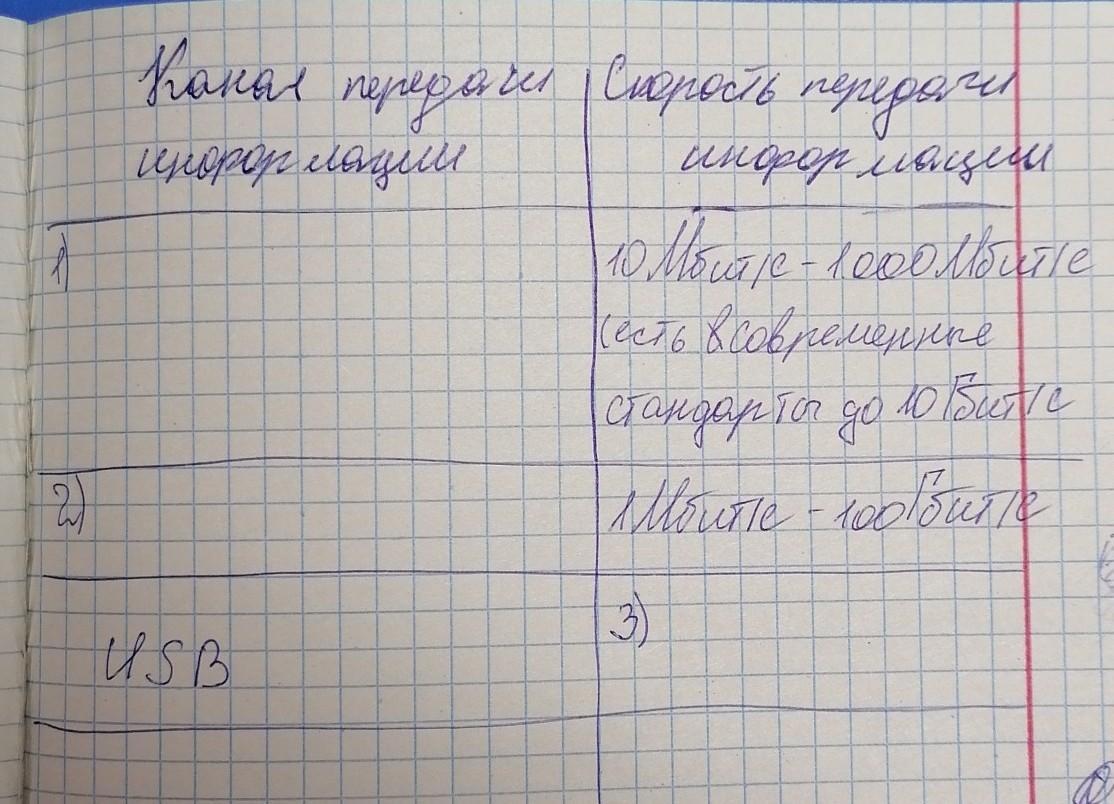 Канал передачи
информации
Скорость передачи
информации
1)
10 Мбит/с - 1000 Мбит/с
(есть в современные
стандарты до 10 Гбит/с
2)
1 Мбит/с - 100 Гбит/с
USB
3)